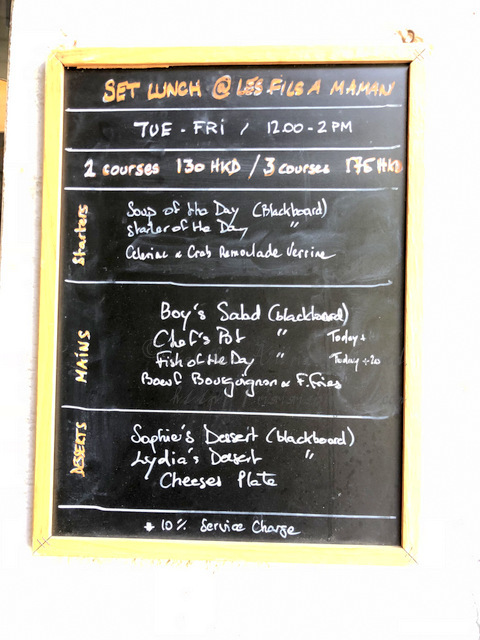 SET LUNCH @ LES FILS A MAMAN
TUE - FRI / 12.00 - 2 PM
2 courses 130 HKD / 3 courses 175 HKD
Starters
Soup of the Day (Blackboard)
Starter of the Day "
Celeriac & Crab Remoulade Verrine
MAINS
Boy's Salad (blackboard)
Chef's Pot " Today +
Fish of the Day " Today + 20
Boeuf Bourguignon & F.Fries
DESSERTS
Sophie's Dessert (blackboard)
Lydia's Dessert "
Cheeses Plate
+ 10% Service Charge